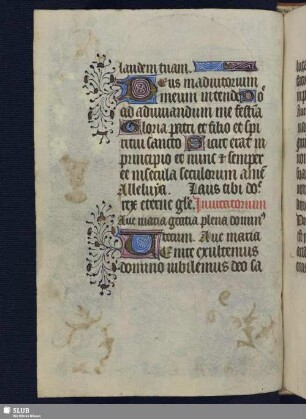 laudem tuam.
Deus in adiutorium
meum intende Do
ad adiuuandum me festina
Gloria patri et filio et spi
ritui sancto Sicut erat in
principio et nunc et semper
et in secula seculorum ame
Alleluya. Laus tibi do
rex eterne gle. Inuitatorium
Aue maria gratia plena domin
tecum. Aue maria
Uenite exultemus
domino iubilemus deo sa
SLUB